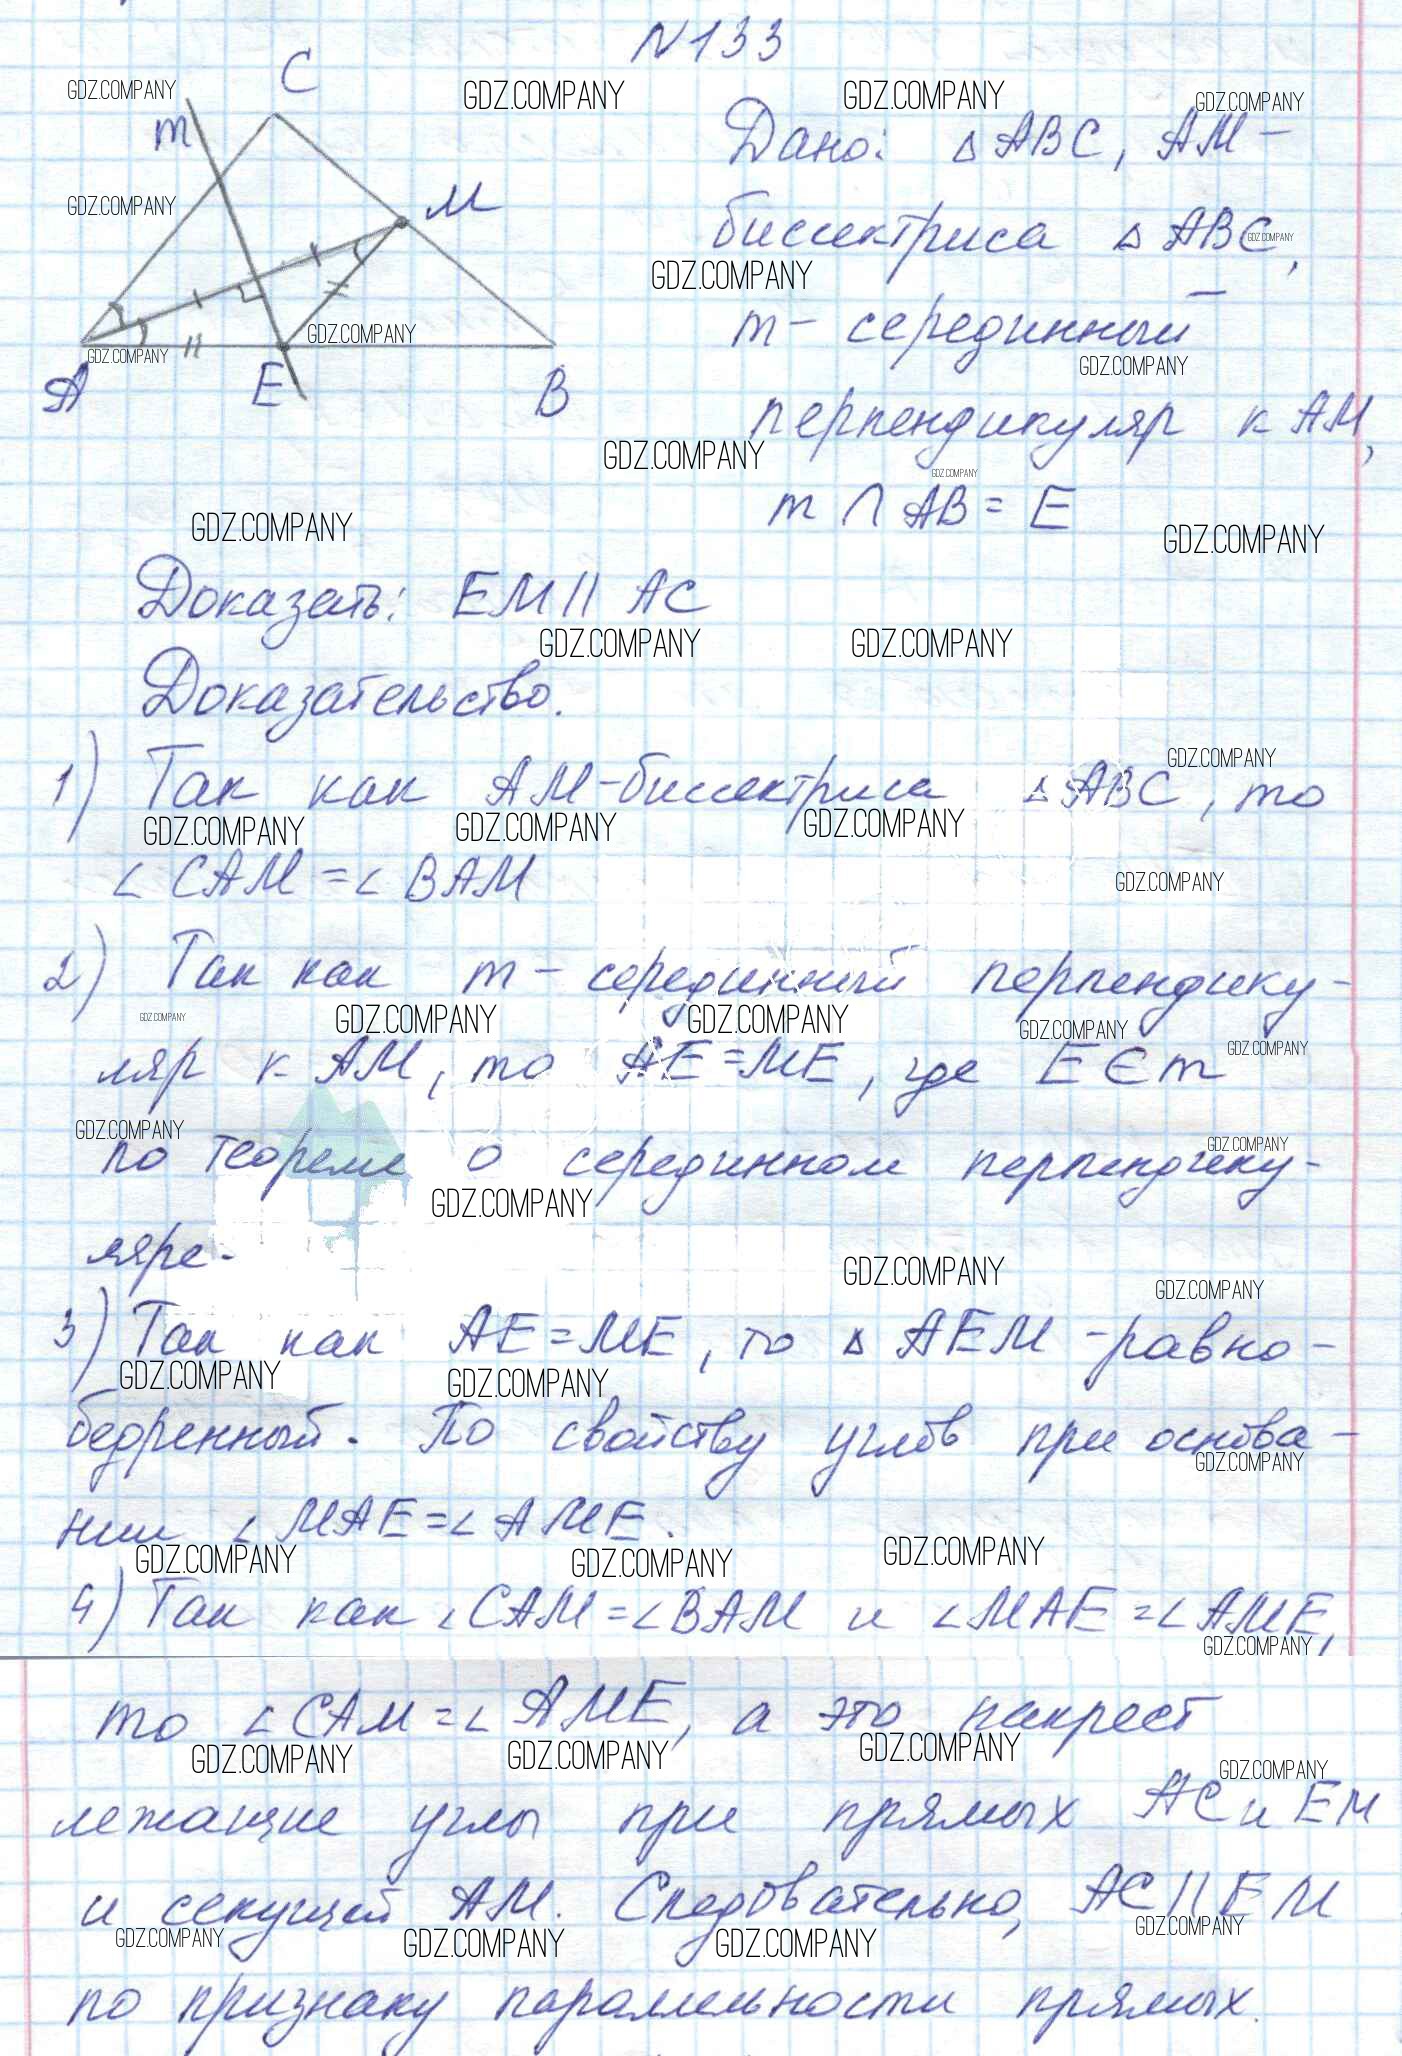 №133
C
m
M
A
E
B
Дано: △ABC, AM -
биссектриса △ABC,
m - серединный
перпендикуляр к AM,
m ∩ AB = E
Доказать: EM || AC
Доказательство.
1) Так как AM - биссектриса △ABC, то
∠CAM = ∠BAM
2) Так как m - серединный перпендику-
ляр к AM, то AE = ME, где E ∈ m
по теореме о серединном перпендику-
ляре.
3) Так как AE = ME, то △AEM - равно-
бедренный. По свойству углов при основа-
нии ∠MAE = ∠AME.
4) Так как ∠CAM = ∠BAM и ∠MAE = ∠AME,
то ∠CAM = ∠AME, а это накрест
лежащие углы при прямых AC и EM
и секущей AM. Следовательно, AC || EM
по признаку параллельности прямых.
GDZ.COMPANY